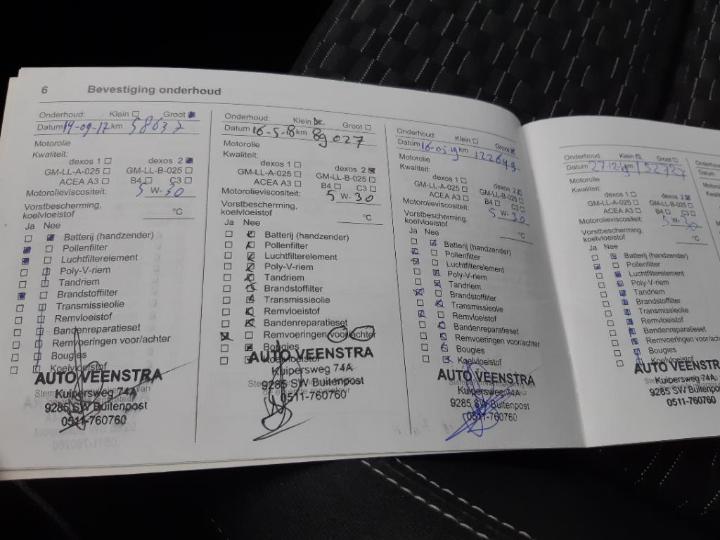 6 Bevestiging onderhoud
Onderhoud: Klein Groot
Datum 19-09-17 km 58632
Motorolie
Kwaliteit:
dexos 1 dexos 2
GM-LL-A-025 GM-LL-B-025
ACEA A3 B4 C3
Motorolieviscositeit: 5 W- 30
Vorstbescherming,
koelvloeistof °C
Ja Nee
Batterij (handzender)
Pollenfilter
Luchtfilterelement
Poly-V-riem
Tandriem
Brandstoffilter
Transmissieolie
Remvloeistof
Bandenreparatieset
Remvoeringen voor/achter
Bougies
Koelvloeistof
AUTO VEENSTRA
Kuipersweg 74A
9285 SW Buitenpost
0511-760760
Onderhoud: Klein Groot
Datum 16-5-18 km 89027
Motorolie
Kwaliteit:
dexos 1 dexos 2
GM-LL-A-025 GM-LL-B-025
ACEA A3 B4 C3
Motorolieviscositeit: 5 W- 30
Vorstbescherming,
koelvloeistof °C
Ja Nee
Batterij (handzender)
Pollenfilter
Luchtfilterelement
Poly-V-riem
Tandriem
Brandstoffilter
Transmissieolie
Remvloeistof
Bandenreparatieset
Remvoeringen voor/achter
Bougies
Koelvloeistof
AUTO VEENSTRA
Kuipersweg 74A
9285 SW Buitenpost
0511-760760
Onderhoud: Klein Groot
Datum 16-05-19 km 122649
Motorolie
Kwaliteit:
dexos 1 dexos 2
GM-LL-A-025 GM-LL-B-025
ACEA A3 B4 C3
Motorolieviscositeit: 5 W- 30
Vorstbescherming,
koelvloeistof °C
Ja Nee
Batterij (handzender)
Pollenfilter
Luchtfilterelement
Poly-V-riem
Tandriem
Brandstoffilter
Transmissieolie
Remvloeistof
Bandenreparatieset
Remvoeringen voor/achter
Bougies
Koelvloeistof
AUTO VEENSTRA
Kuipersweg 74A
9285 SW Buitenpost
0511-760760
Onderhoud: Klein Groot
Datum km
Motorolie
Kwaliteit:
dexos 1 dexos 2
GM-LL-A-025 GM-LL-B-025
ACEA A3 B4 C3
Motorolieviscositeit: W-
Vorstbescherming,
koelvloeistof °C
Ja Nee
Batterij (handzender)
Pollenfilter
Luchtfilterelement
Poly-V-riem
Tandriem
Brandstoffilter
Transmissieolie
Remvloeistof
Bandenreparatieset
Remvoeringen voor/achter
Bougies
Koelvloeistof
AUTO VEENSTRA
Kuipersweg 74A
9285 SW Buitenpost
0511-760760